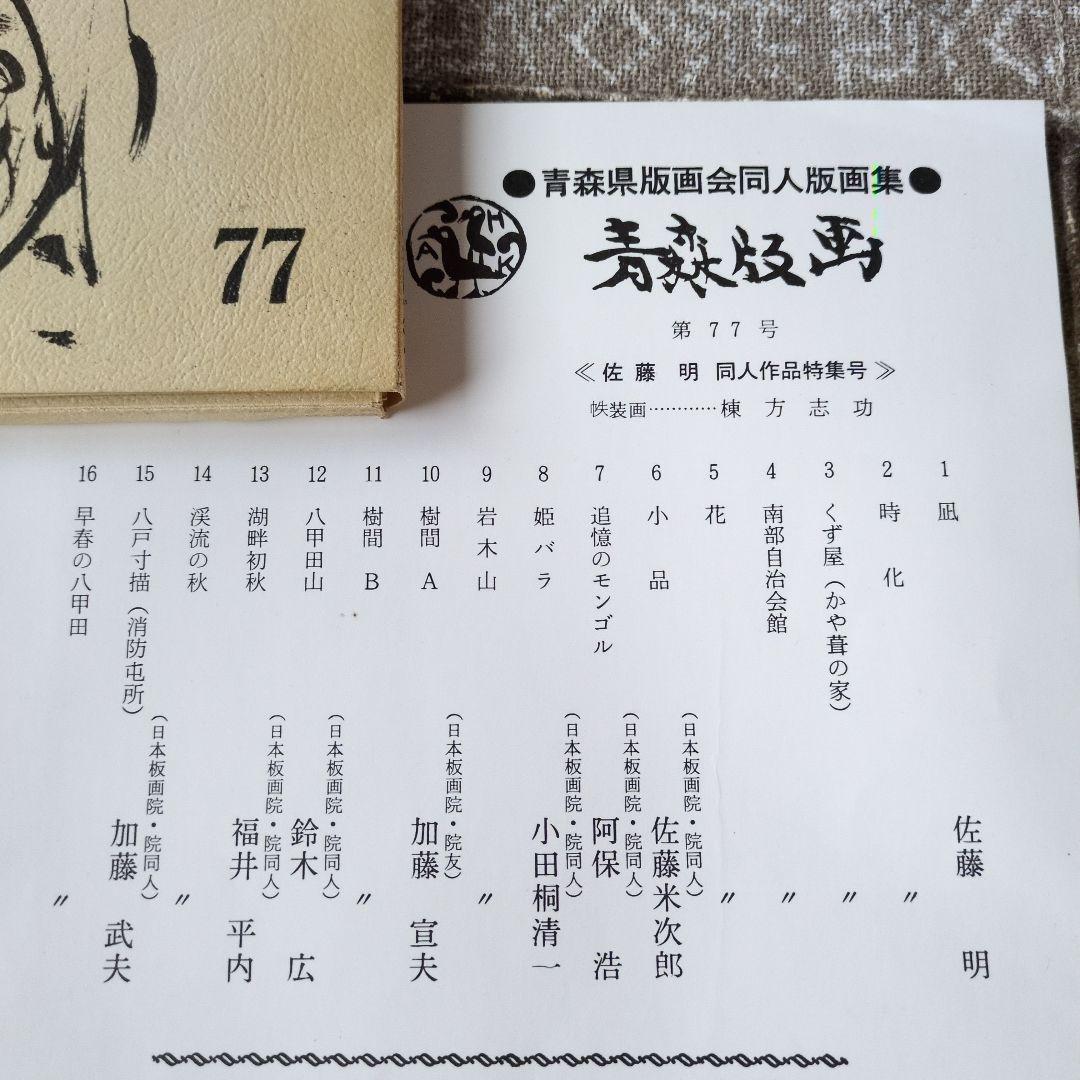 77
●青森県版画会同人版画集●
AHK
青森版画
第77号
≪佐藤 明 同人作品特集号≫
帙装画…………棟方志功
1 凪 佐藤 明
2 時化 〃
3 くず屋(かや葺の家) 〃
4 南部自治会館 〃
5 花 〃
6 小品 (日本板画院・院同人) 佐藤米次郎
7 追憶のモンゴル (日本板画院・院同人) 阿保 浩
8 姫バラ (日本板画院・院同人) 小田桐清一
9 岩木山 〃
10 樹間 A (日本板画院・院友) 加藤 宣夫
11 樹間 B 〃
12 八甲田山 (日本板画院・院同人) 鈴木 広
13 湖畔初秋 (日本板画院・院同人) 福井 平内
14 渓流の秋 〃
15 八戸寸描(消防屯所) (日本板画院・院同人) 加藤 武夫
16 早春の八甲田 〃